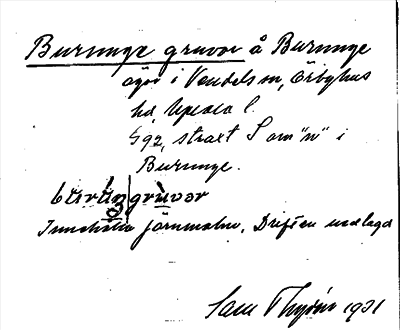 Burunge gruvor å Burunge
ägor i Vendels sn, Örbyhus
hd, Upsala l.
§92, straxt S om "n" i
Burunge.
gruvor
Innehålla järnmalm. Driften nedlagd
1931